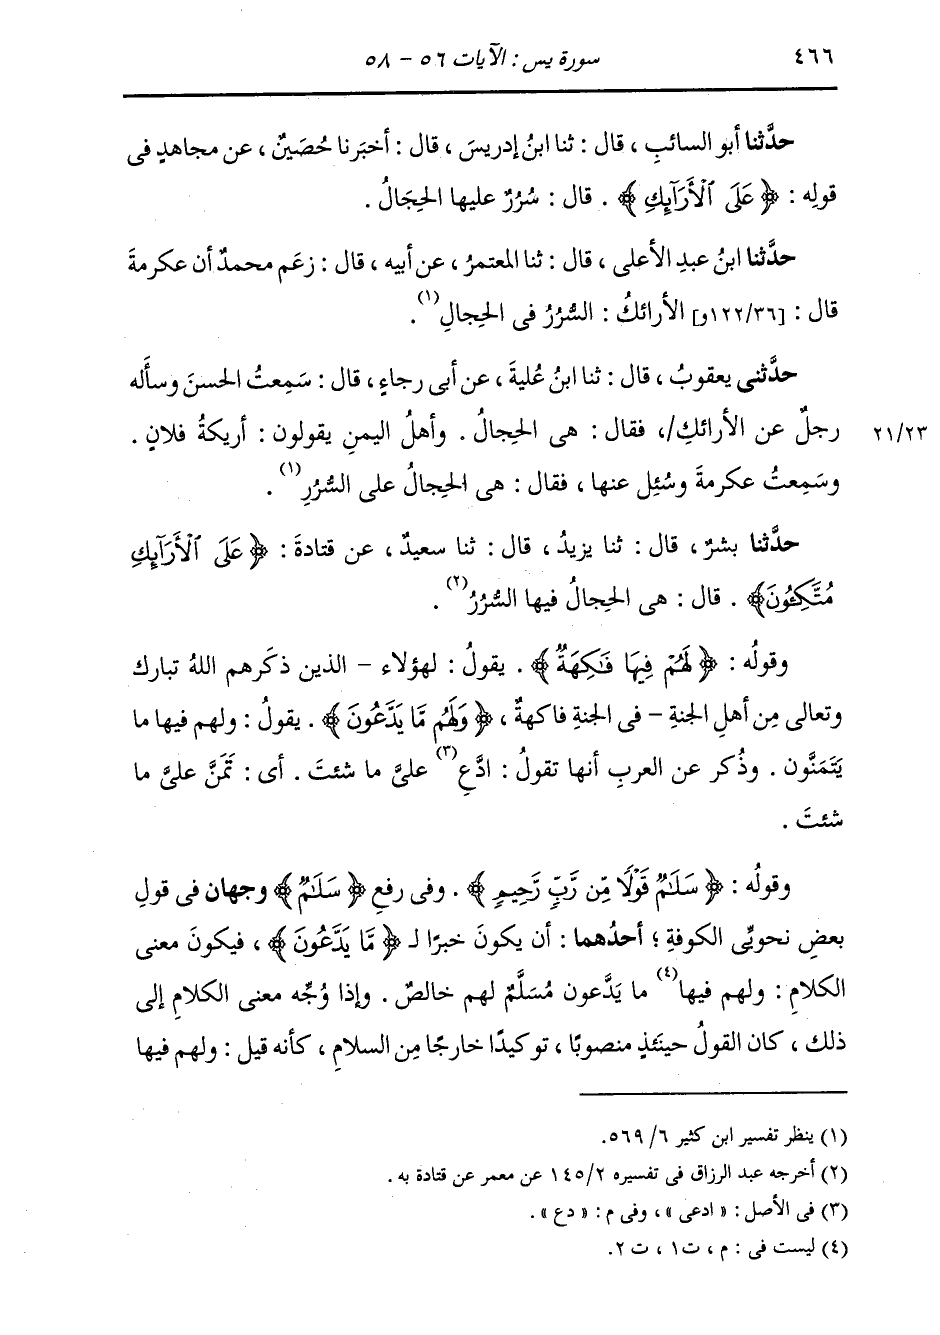 ٤٦٦ سورة يس : الآيات ٥٦ - ٥٨
حدَّثنا أبو السائبِ ، قال : ثنا ابنُ إدريسَ ، قال : أخبَرنا حُصَينٌ ، عن مجاهدٍ فى
قولِه : ﴿ عَلَى ٱلْأَرَآئِكِ ﴾ . قال : سُرُرٌ عليها الحِجَالُ .
حدَّثنا ابنُ عبدِ الأعلى ، قال : ثنا المعتمرُ ، عن أبيه ، قال : زعَم محمدٌ أن عكرمةَ
قال : [١٢٢/٣٦و] الأرائكُ : السُّرُرُ فى الحِجالِ(١).
حدَّثنى يعقوبُ ، قال : ثنا ابنُ عُليةَ ، عن أبى رجاءٍ ، قال : سَمِعتُ الحسنَ وسأَله
رجلٌ عن الأرائكِ/، فقال : هى الحِجالُ . وأهلُ اليمنِ يقولون : أريكةُ فلانٍ . ٢١/٢٣
وسَمِعتُ عكرمةَ وسُئِل عنها ، فقال : هى الحِجالُ على السُّرُرِ(١) .
حدَّثنا بشرٌ ، قال : ثنا يزيدُ ، قال : ثنا سعيدٌ ، عن قتادةَ : ﴿ عَلَى ٱلْأَرَآئِكِ
مُتَّكِـُٔونَ﴾ . قال : هى الحِجالُ فيها السُّرُرُ(٢) .
وقولُه : ﴿ لَهُمْ فِيهَا فَٰكِهَةٌ ﴾ . يقولُ : لهؤلاء - الذين ذكَرهم اللهُ تبارك
وتعالى مِن أهلِ الجنةِ - فى الجنةِ فاكهةٌ ، ﴿ وَلَهُم مَّا يَدَّعُونَ ﴾ . يقولُ : ولهم فيها ما
يَتَمَنَّون . وذُكر عن العربِ أنها تقولُ : ادَّعِ(٣) علىَّ ما شئتَ . أى : تَمَنَّ علىَّ ما
شئتَ .
وقولُه : ﴿ سَلَٰمٌ قَوْلًا مِّن رَّبٍّ رَّحِيمٍ ﴾ . وفى رفعِ ﴿ سَلَٰمٌ ﴾ وجهان فى قولِ
بعضِ نحويِّى الكوفةِ ؛ أحدُهما : أن يكونَ خبرًا لـ ﴿ مَّا يَدَّعُونَ ﴾ ، فيكونَ معنى
الكلامِ : ولهم فيها(٤) ما يَدَّعون مُسَلَّمٌ لهم خالصٌ . وإذا وُجِّه معنى الكلامِ إلى
ذلك ، كان القولُ حينَئذٍ منصوبًا ، توكيدًا خارجًا مِن السلامِ ، كأنه قيل : ولهم فيها
(١) ينظر تفسير ابن كثير ٦/ ٥٦٩.
(٢) أخرجه عبد الرزاق فى تفسيره ١٤٥/٢ عن معمر عن قتادة به .
(٣) فى الأصل : « ادعى » ، وفى م : « دع » .
(٤) ليست فى : م ، ت١ ، ت ٢.